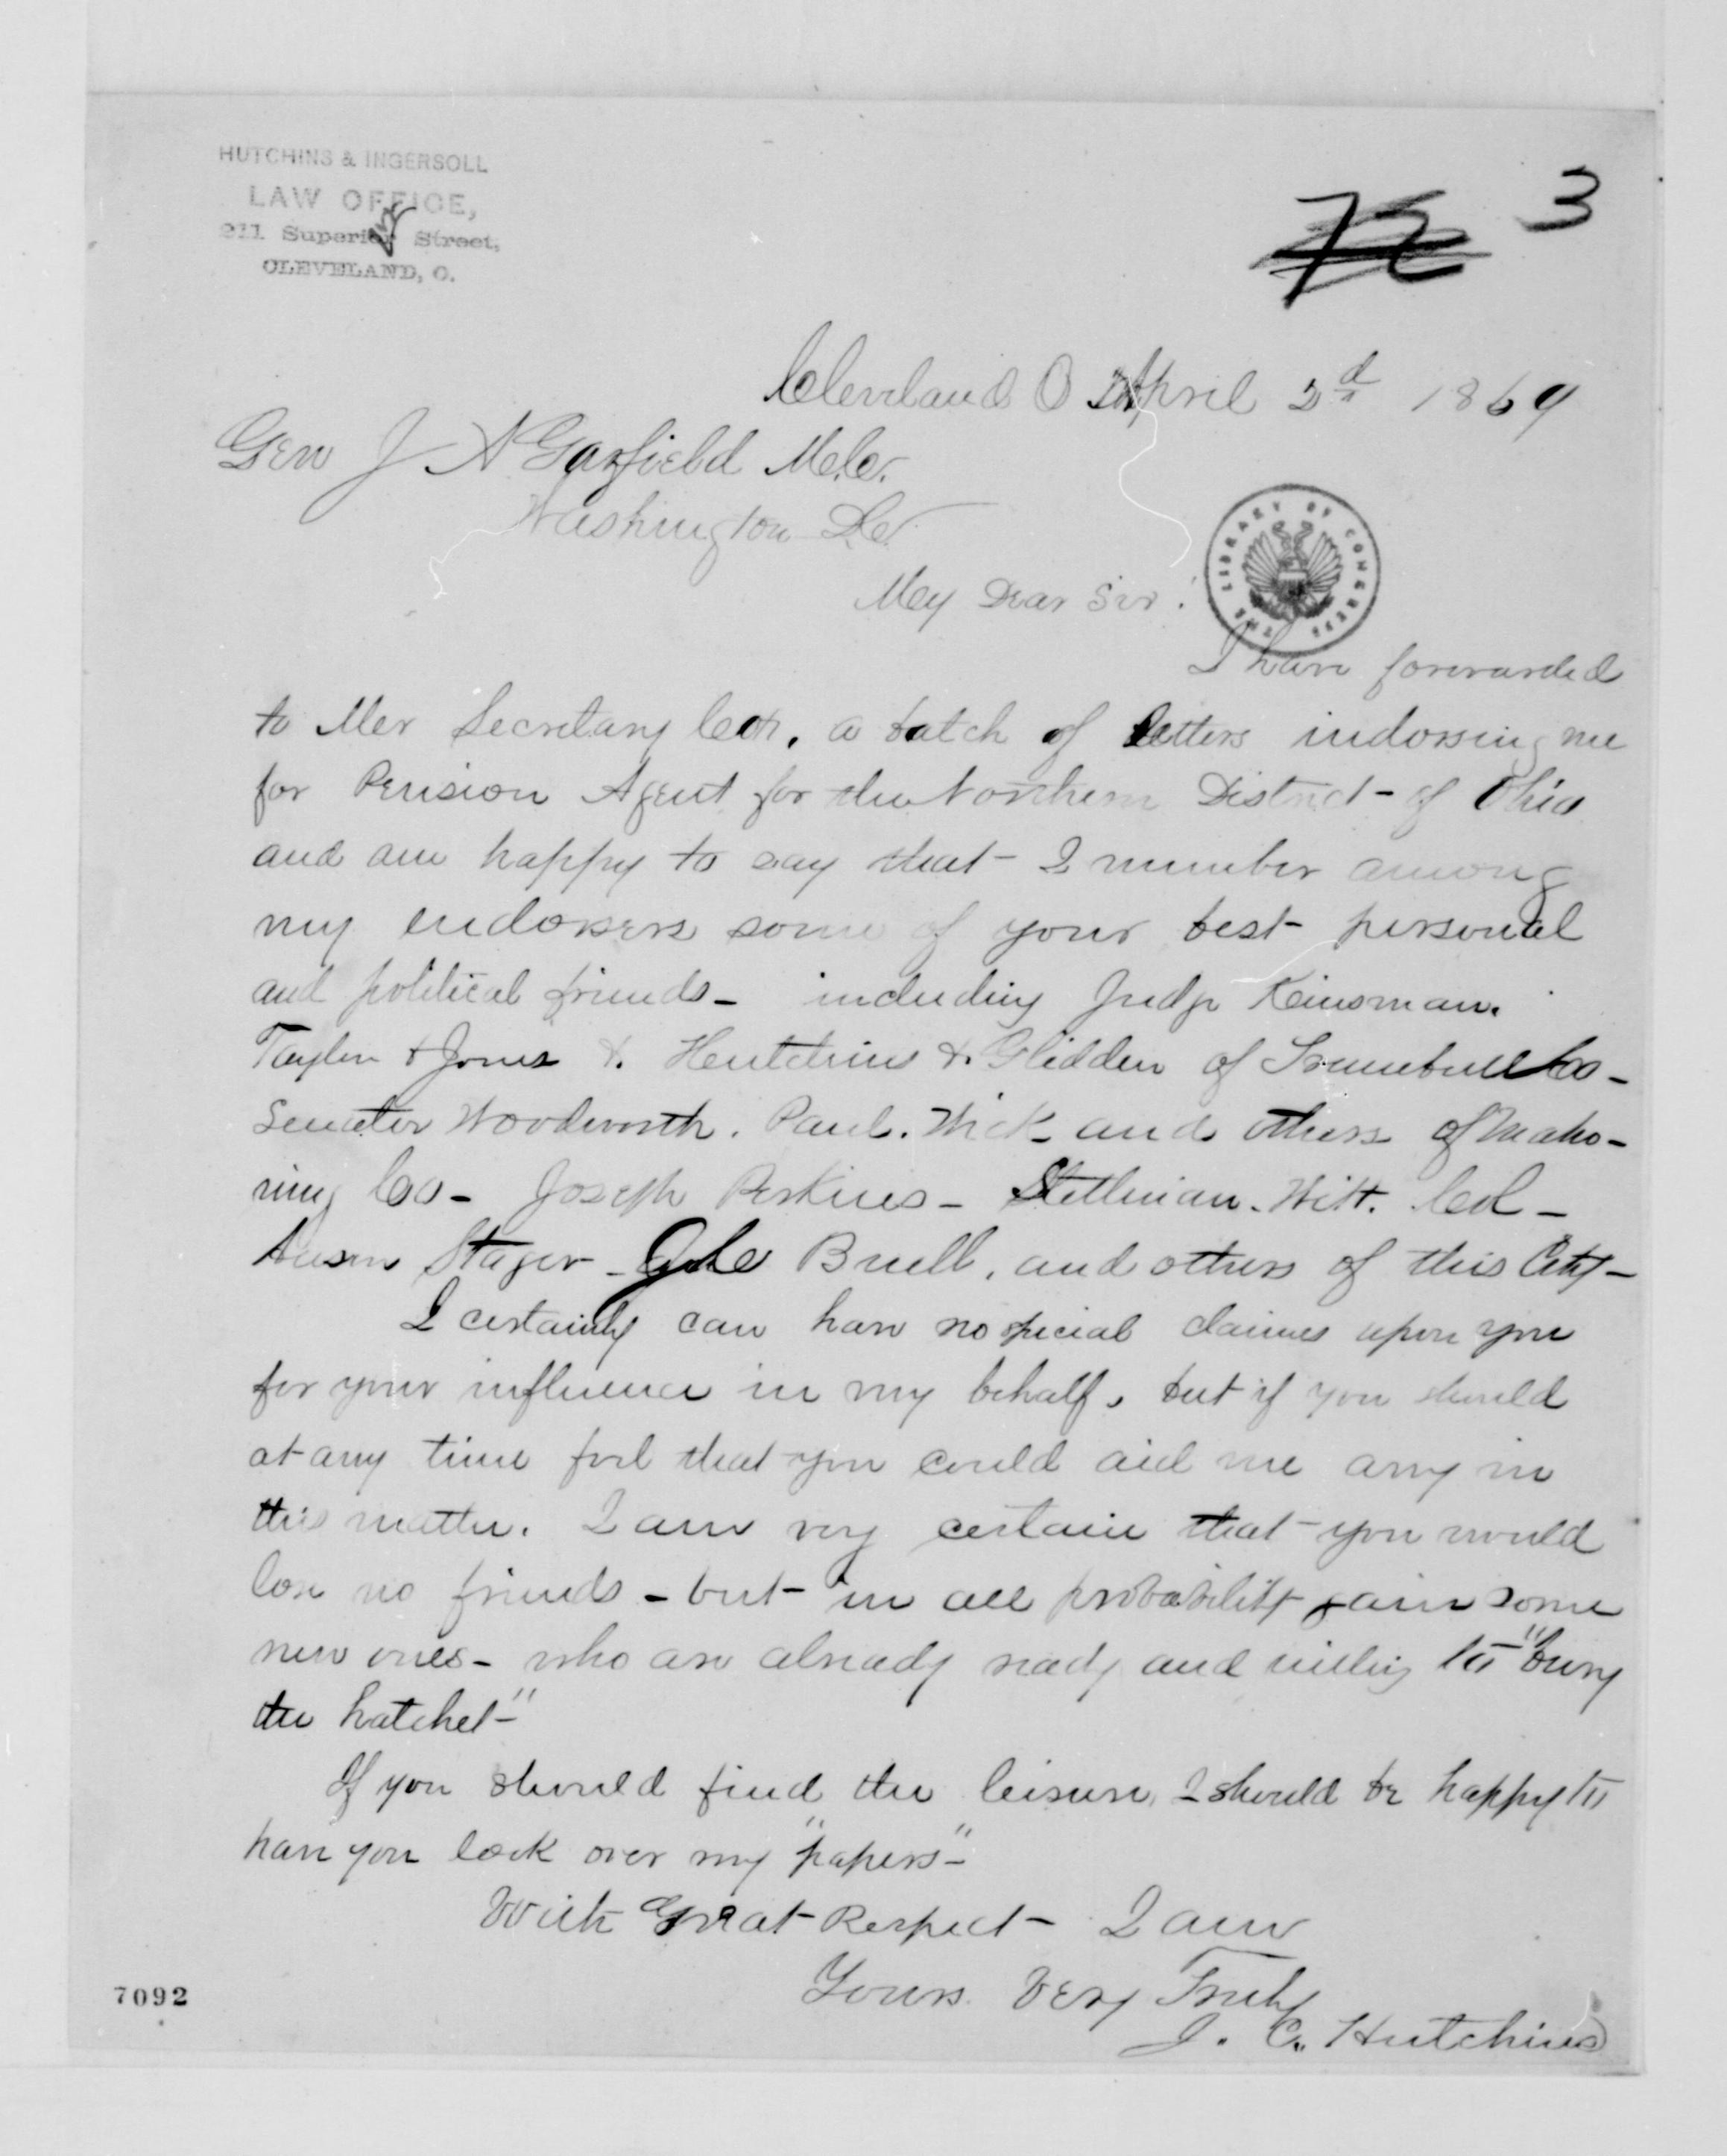 HUTCHINS & INGERSOLL
LAW OFFICE,
211 Superior Street,
CLEVELAND, O.
3
Cleveland O April 2d 1869
Gen J A Garfield M.C.
Washington D.C.
My Dear Sir:
THE LIBRARY OF CONGRESS
I have forwarded
to Mr Secretary Cox, a batch of letters indorsing me
for Pension Agent for the Northern District of Ohio
and am happy to say that I number among
my endorsers some of your best personal
and political friends - including Judge Kinsman.
Taylor & Jones &. Hutchins &. Glidden of Trumbull Co -
Senator Woodworth. Paul. Wick and others of Maho-
ning Co - Joseph Perkins - Stillman. Witt. Col -
Anson Stager - Buell, and others of this City -
I certainly can have no special claims upon you
for your influence in my behalf, but if you should
at any time feel that you could aid me any in
this matter. I am very certain that you would
lose no friends - but in all probability gain some
new ones - who are already ready and willing to "bury
the hatchet"
If you should find the leisure, I should be happy to
have you look over my "papers" -
With Great Respect - I am
Yours Very Truly
J. C. Hutchins
7092